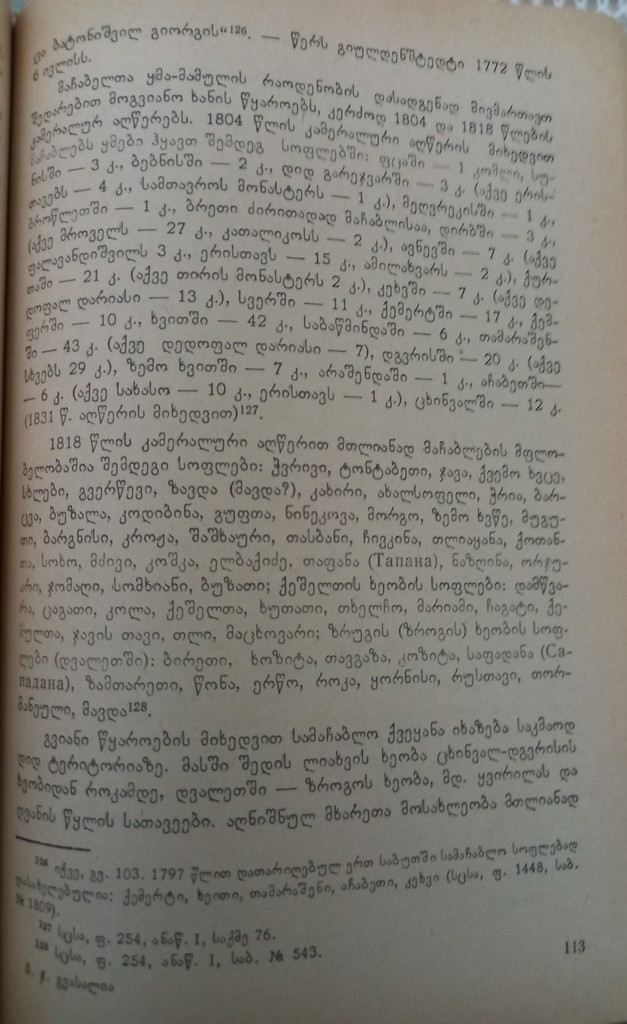 ცა ბატონიშვილ გიორგის“¹²⁶. — წერს გიულდენშტედტი 1772 წლის
6 ივლისს.
მაჩაბელთა ყმა-მამულის რაოდენობის დასადგენად მივმართავთ
შედარებით მოგვიანო ხანის წყაროებს, კერძოდ 1804 და 1818 წლების
კამერალურ აღწერებს. 1804 წლის კამერალური აღწერის მიხედვით
მაჩაბლებს ყმები ჰყავთ შემდეგ სოფლებში: ფცაში — 1 კომლი, სუ-
ნისში — 3 კ., ბებნისში — 2 კ., დიდ გარეჯვარში — 3 კ. (აქვე ერის-
თავებს — 4 კ., სამთავროს მონასტერს — 1 კ.), მეღვრეკისში — 1 კ.,
ბროწლეთში — 1 კ., ბრეთი ძირითადად მაჩაბლისაა, დირბში — 3 კ.,
(აქვე მროველს — 27 კ., კათალიკოსს — 2 კ.), ავნევში — 7 კ. (აქვე
ფალავანდიშვილს 3 კ., ერისთავს — 15 კ., ამილახვარს — 2 კ.), ქურ-
თაში — 21 კ. (აქვე თირის მონასტერს 2 კ.), კეხვში — 7 კ. (აქვე დე-
დოფალ დარიასი — 13 კ.), სვერში — 11 კ., ქემერტში — 17 კ., ქემ-
ფერში — 10 კ., ხვითში — 42 კ., საბაწმინდაში — 6 კ., თამარაშენ-
ში — 43 კ. (აქვე დედოფალ დარიასი — 7), დგვრისში — 20 კ. (აქვე
სხვებს 29 კ.), ზემო ხვითში — 7 კ., არაშენდაში — 1 კ., აჩაბეთში—
— 6 კ. (აქვე სახასო — 10 კ., ერისთავს — 1 კ.), ცხინვალში — 12 კ.
(1831 წ. აღწერის მიხედვით)¹²⁷.
1818 წლის კამერალური აღწერით მთლიანად მაჩაბლების მფლო-
ბელობაშია შემდეგი სოფლები: ჭვრივი, ტონტაბეთი, ჯავა, ქვემო ხვცე,
სხლები, გვერწევი, ზავდა (მავდა?), კახირი, ახალსოფელი, ჭრია, ბარ-
ცვა, ბუზალა, კოდიბინა, გუფთა, ნინეკოვა, მორგო, ზემო ხვწე, მუგუ-
თი, ბარგნისი, კროჟა, შაშხაური, თასბანი, ჩივკინა, თლიაყანა, ქოთან-
თა, სოხო, მძივი, კოშკა, ელბაქიძე, თაფანა (Тапана), ნაზღინა, ორჯუ-
არი, ჯომაღი, სომხიანი, ბუზათი; ქეშელთის ხეობის სოფლები: დამწვა-
რა, ცაგათი, კოლა, ქეშელთა, ხუთათი, თხელჩო, მარიამი, ჩაგატი, ქე-
მულთა, ჯავის თავი, თლი, მაცხოვარი; ზრუგის (ზროგის) ხეობის სოფ-
ლები (დვალეთში): ბირეთი, ხოზიტა, თავგაზა, კოზიტა, საფადანა (Са-
падана), ზამთარეთი, წონა, ერწო, როკა, ყორნისი, რუსთავი, თორ-
მანეული, მავდა¹²⁸.
გვიანი წყაროების მიხედვით სამაჩაბლო ქვეყანა იხაზება საკმაოდ
დიდ ტერიტორიაზე. მასში შედის ლიახვის ხეობა ცხინვალ-დგვრისის
ხეობიდან როკამდე, დვალეთში — ზროგოს ხეობა, მდ. ყვირილას და
ღვანის წყლის სათავეები. აღნიშნულ მხარეთა მოსახლეობა მთლიანად
¹²⁶ იქვე, გვ. 103. 1797 წლით დათარიღებულ ერთ საბუთში სამაჩაბლო სოფლებად
დასახელებულია: ქემერტი, ხეითი, თამარაშენი, აჩაბეთი, კეხვი (სცსა, ფ. 1448, საბ.
№ 1809).
¹²⁷ სცსა, ფ. 254, ანაწ. I, საქმე 76.
¹²⁸ სცსა, ფ. 254, ანაწ. I, საბ. № 543.
8. ჯ. გვასალია
113